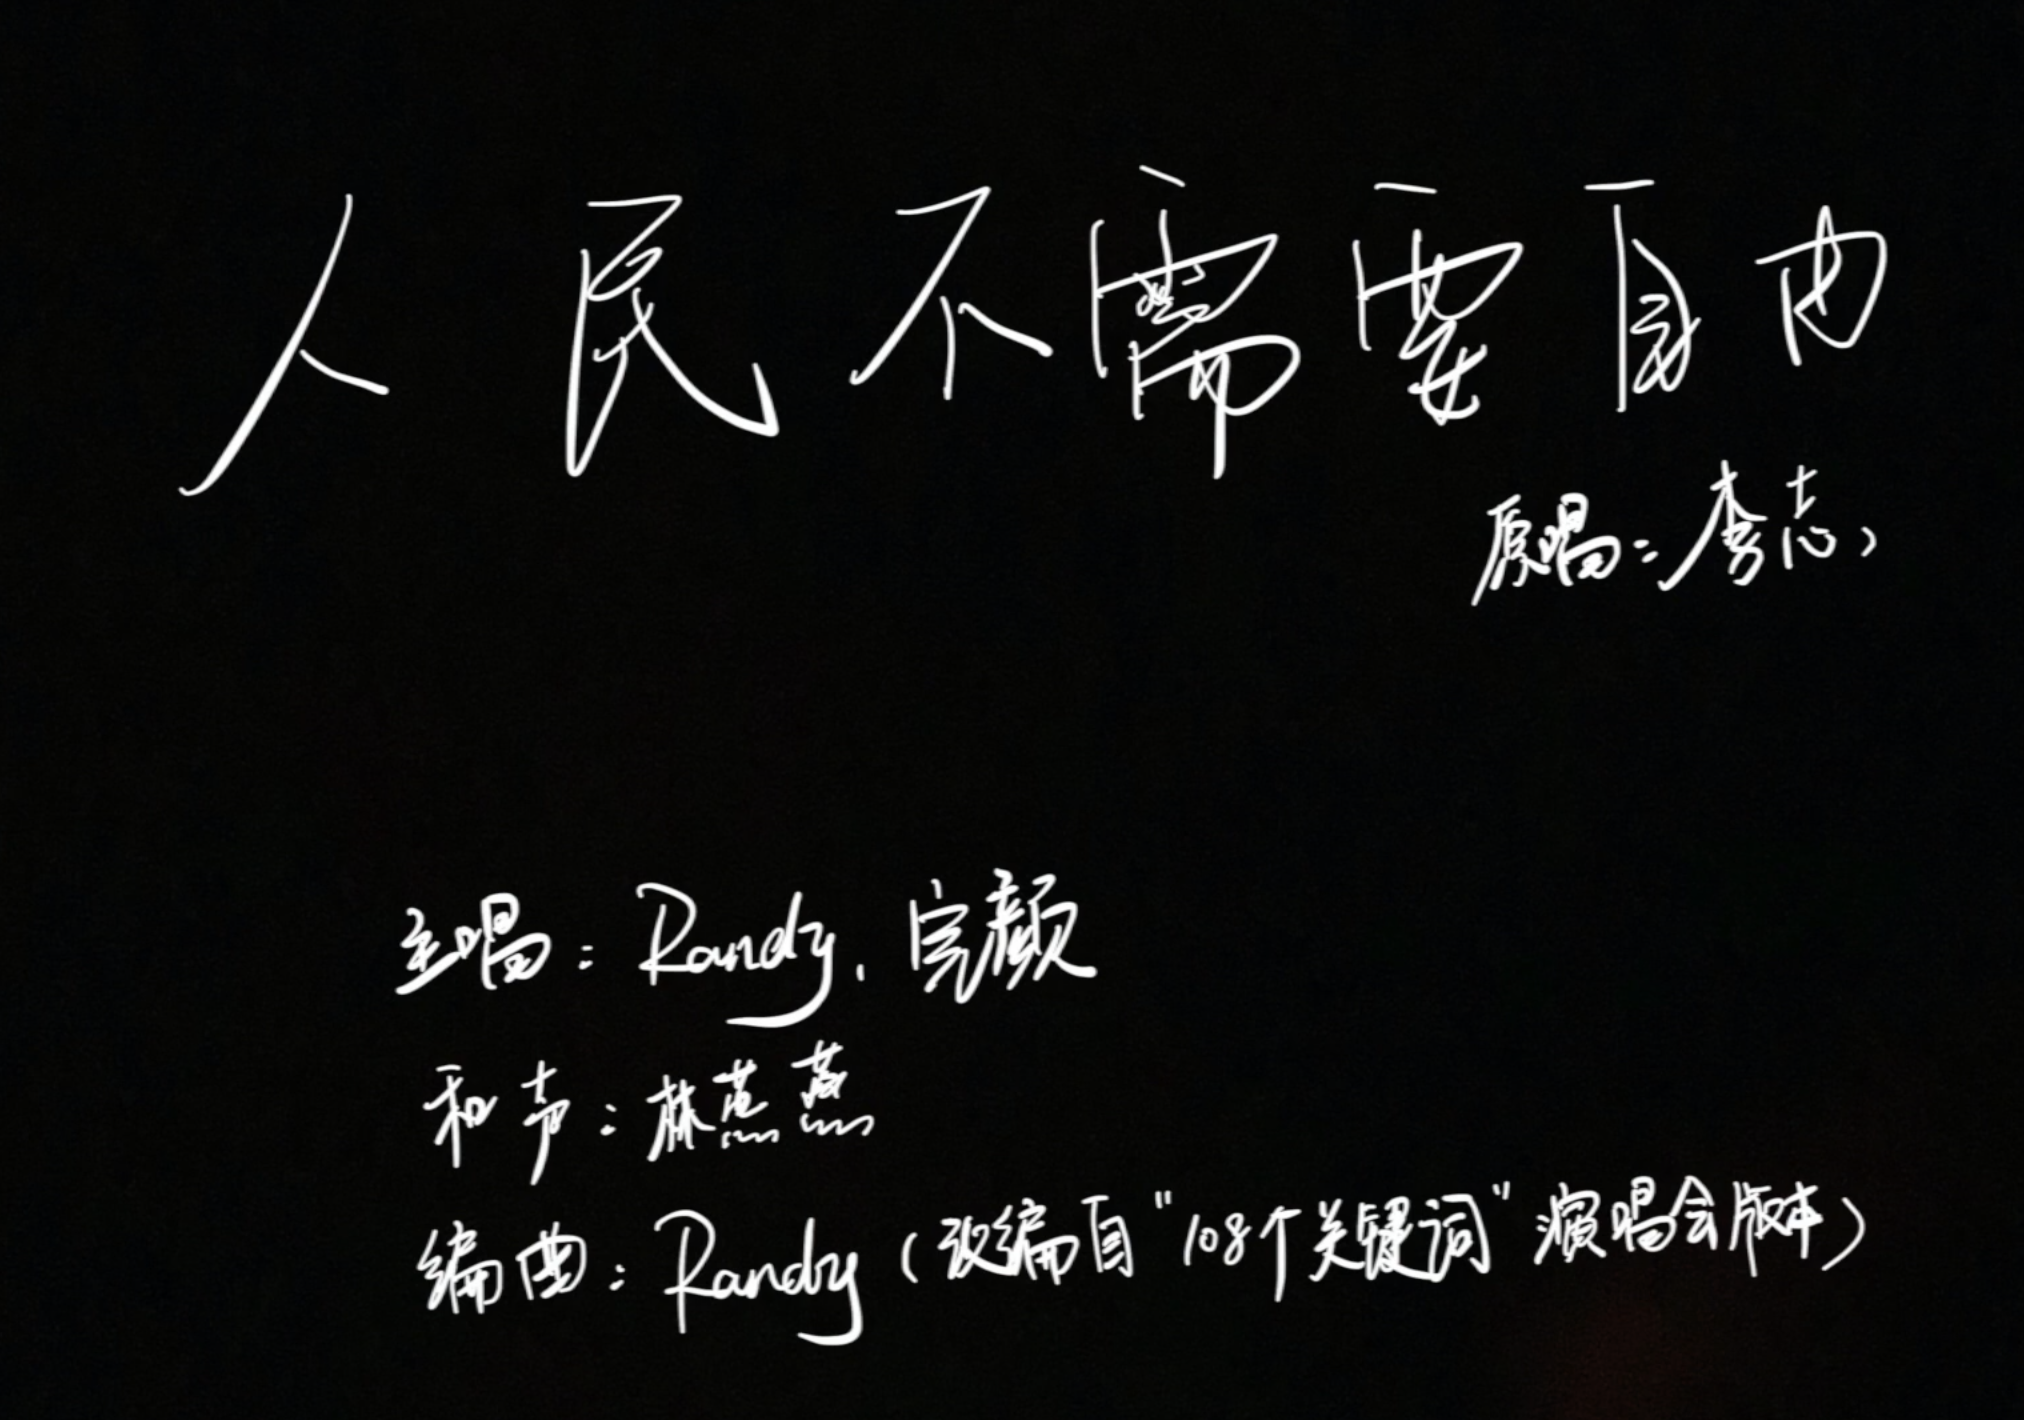 人民不需要自由
原唱：李志
主唱：Randy、完颜
和声：林燕燕
编曲：Randy（改编自"108个关键词"演唱会版本）